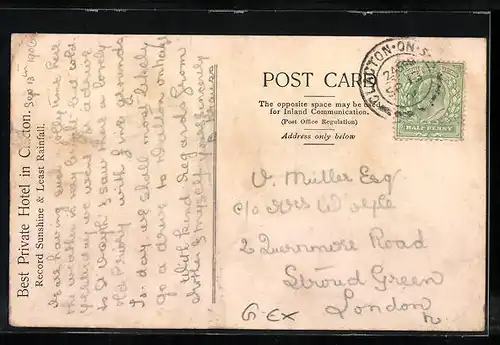 Best Private Hotel in Clacton.
Record Sunshine & Least Rainfall.
Sep 13th 1906
We are having such a jolly time here
the weather is very but cold.
Yesterday we went a drive
to & saw there a lovely
old Priory with fine grounds
To-day we shall most likely
go a drive to
With kind regards from
mother & myself Yours sincerely
CLACTON·ON·S
POST CARD
The opposite space may be used
for Inland Communication.
(Post Office Regulation)
Address only below
HALF PENNY
V. Müller Esq
c/o Mrs Wolfle
2 Quernmore Road
Stroud Green
London
N
G-EX